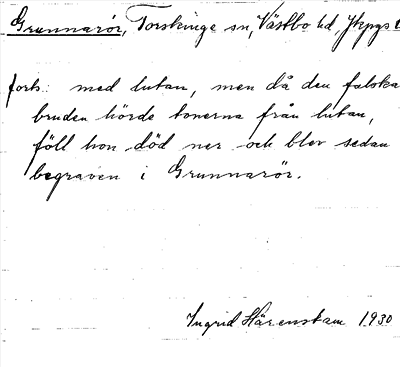 Grunnarör, Torskinge sn, Västbo hd, Jkpgs
forts. med lutan, men då den falska
bruden hörde tonerna från lutan,
föll hon död ner och blev sedan
begraven i Grunnarör.
Ingrid Härenstam 1930